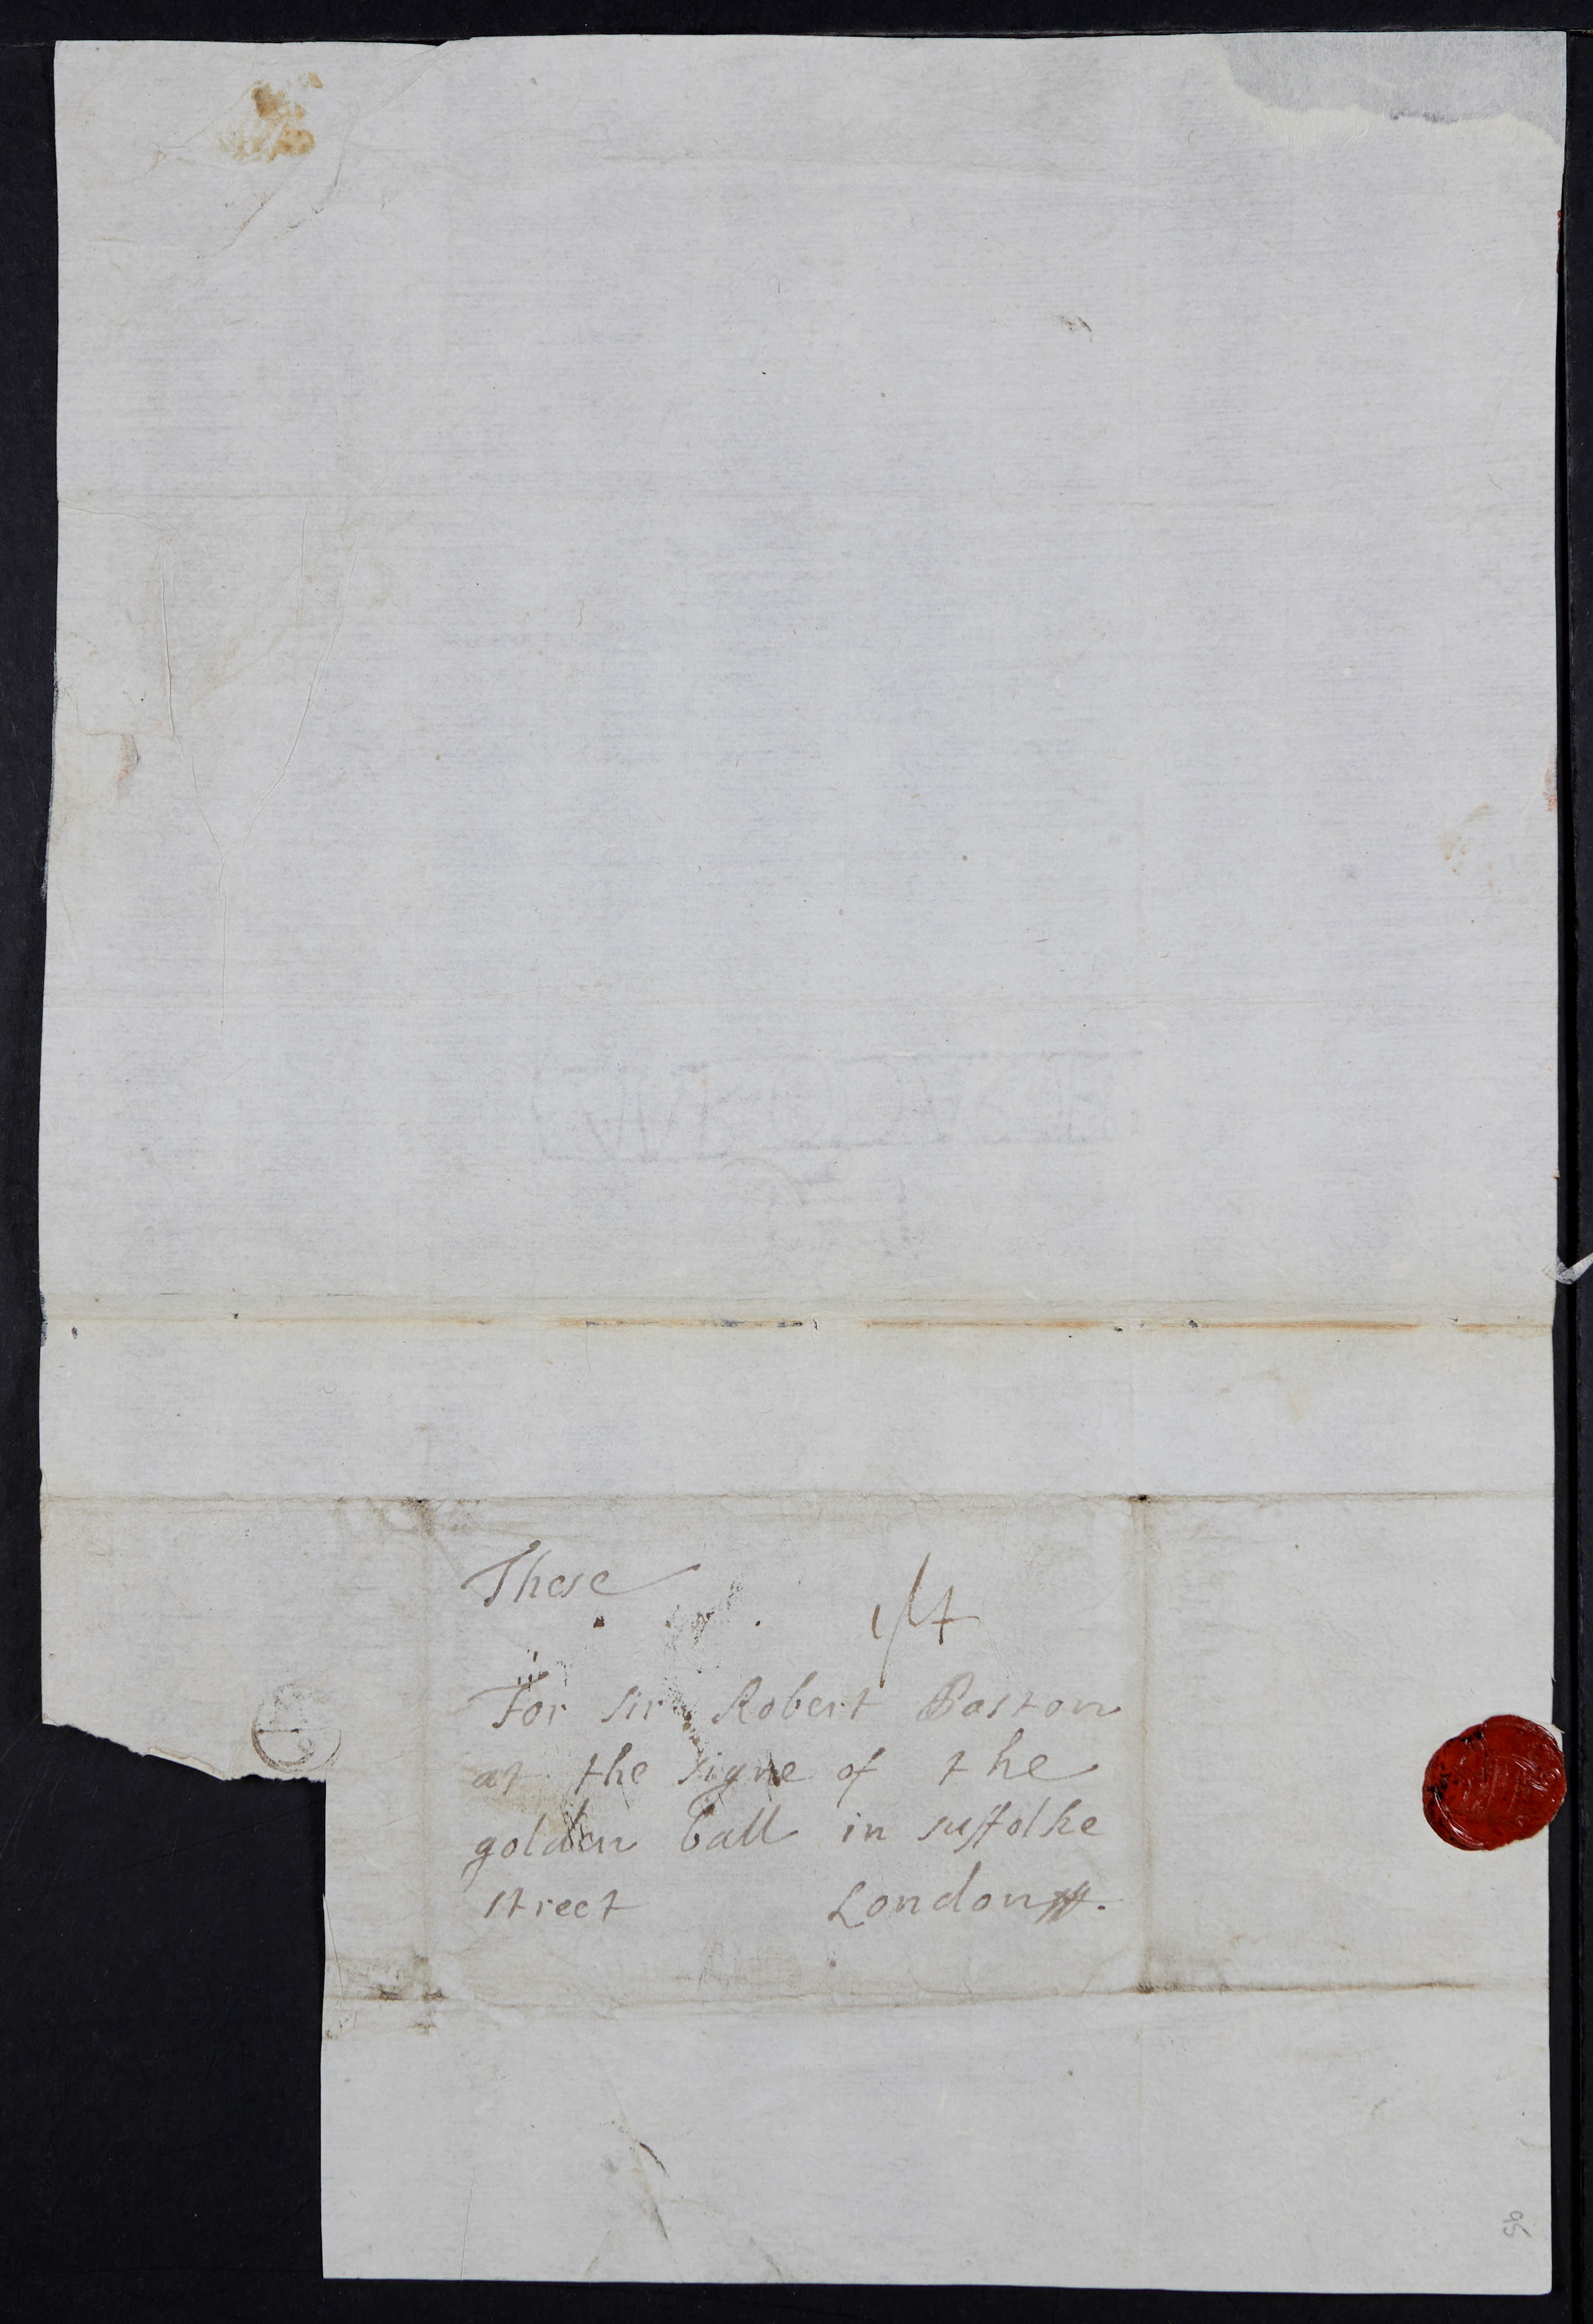 These
For Sir Robert Paston
at the signe of the
golden ball in suffolke
street London
95